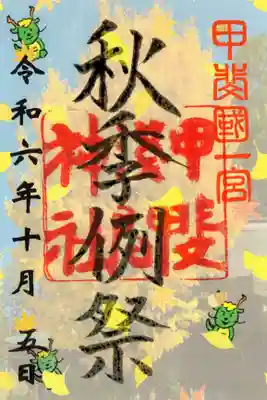 甲斐國一宮
秋季例祭
甲斐
神社
令和六年十月五日